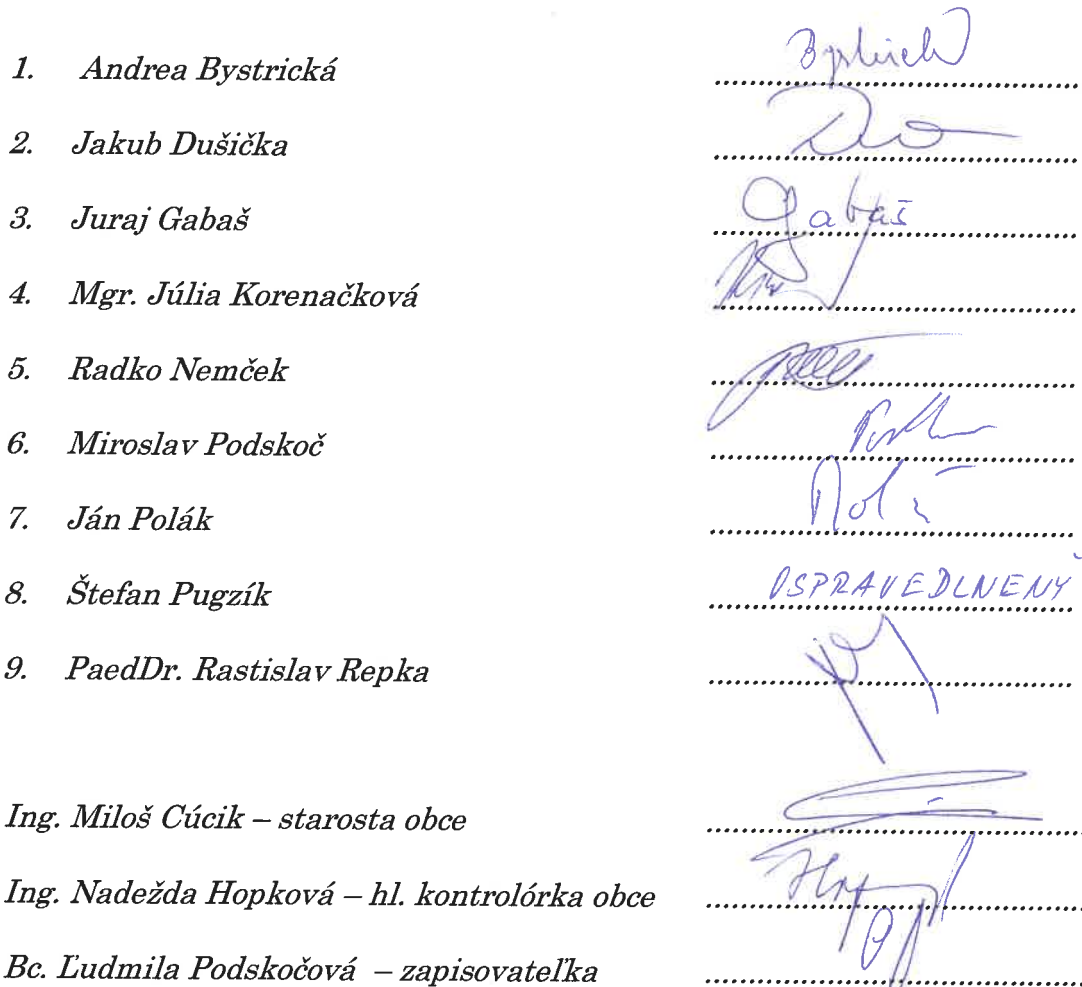 1. Andrea Bystrická
2. Jakub Dušička
3. Juraj Gabaš Gabaš
4. Mgr. Júlia Korenačková
5. Radko Nemček
6. Miroslav Podskoč
7. Ján Polák
8. Štefan Pugzík OSPRAVEDLNENÝ
9. PaedDr. Rastislav Repka
Ing. Miloš Cúcik – starosta obce
Ing. Nadežda Hopková – hl. kontrolórka obce
Bc. Ľudmila Podskočová – zapisovateľka